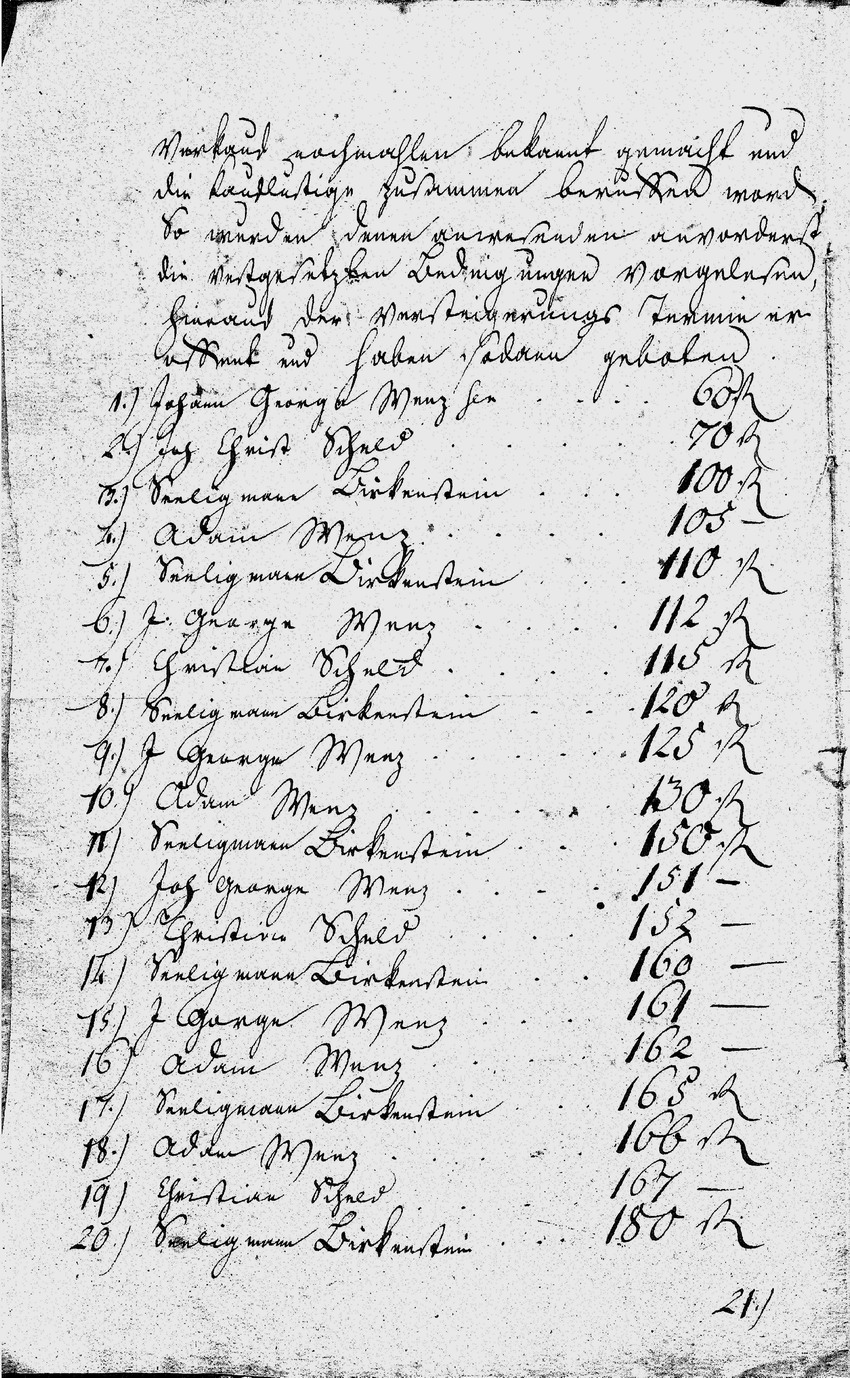 Verkauf nochmahlen bekannt gemacht und
die Kauflustige zusammen beruffen word
So wurden denen anwesenden anvorderst
die vestgesetzten Bedingungen vorgelesen,
hierauf der Versteigerungs Termin er
öffent und haben sodann geboten
1.) Johann George Wenz sen . . . . 60 fl
2.) Joh Christ Scheld . . . . 70 fl
3.) Seeligmann Birkenstein . . . 100 fl
4.) Adam Wenz . . . . 105 —
5.) Seeligmann Birkenstein . . . 110 fl
6.) J. George Wenz . . . . 112 fl
7.) Christian Scheld . . . . 115 fl
8.) Seeligmann Birkenstein . . . 120 fl
9.) J George Wenz . . . . 125 fl
10.) Adam Wenz . . . . 130 fl
11.) Seeligmann Birkenstein . . . 150 fl
12) Joh George Wenz . . . . 151 —
13) Christian Scheld . . . . 152 —
14.) Seeligmann Birkenstein . . . 160 —
15) J Gorge Wenz . . . 161 —
16) Adam Wenz . . . . 162 —
17.) Seeligmann Birkenstein . . . 165 fl
18.) Adam Wenz . . . . 166 fl
19) Christian Scheld . . . 167 —
20.) Seeligmann Birkenstein . . . 180 fl
21.)